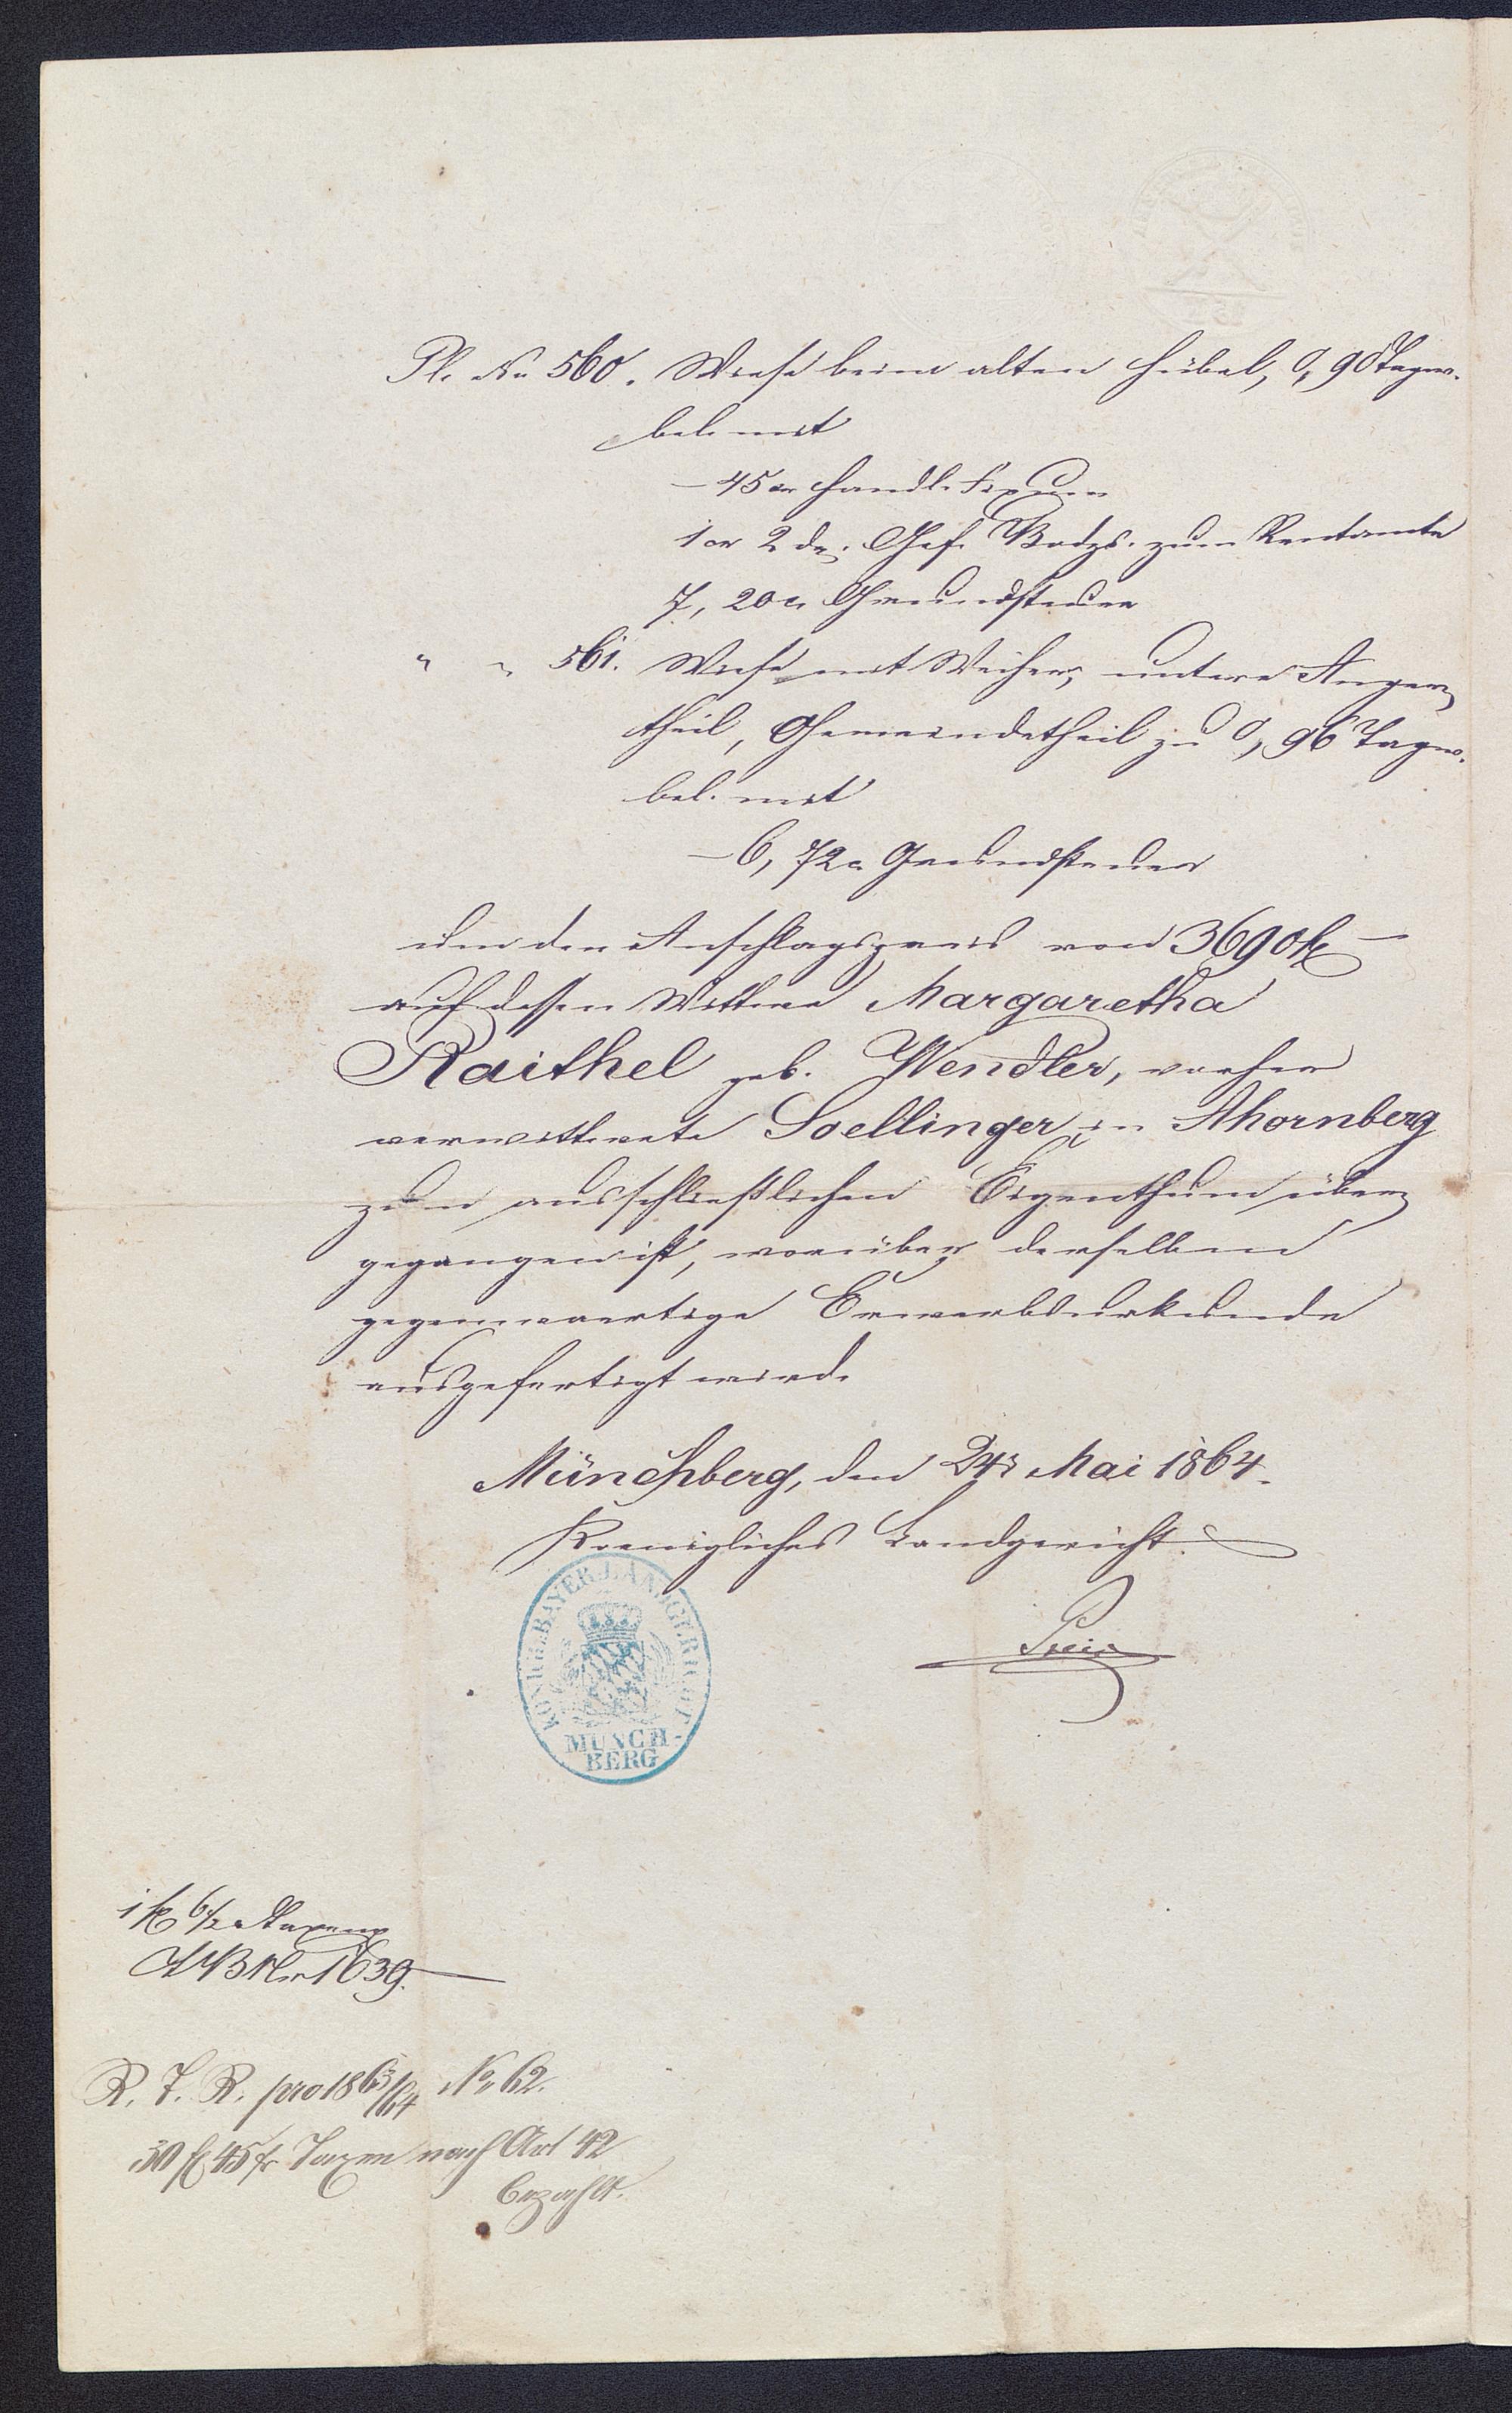 Pl. No 560. Wiese beim alten Hübel, 0,90 Tagw.
bel. mit
– 45 xr Handl. Fixum
1 xr 2 dn. Gef. Bodzs. zum Rentamte
7,20 xr Grundsteuer
" " 561. Wiese mit Weiher, untere Anger-
theil, Gemeindetheil zu 0,96 Tagw.
bel. mit
– 6,72 xr Grundsteuer
um den Anschlagspreis von 3690 fl –
auf dessen Wittwe Margaretha
Raithel geb. Wendler, vorher
verwittwete Soellinger in Ahornberg
zum ausschließlichen Eigenthum über-
gegangen ist, worüber derselben
gegenwaertige Erwerbsurkunde
ausgefertigt wird.
Münchberg, den 24. Mai 1864.
Koenigliches Landgericht.
KOENIGL. BAYER. LANDGERICHT
MÜNCH-
BERG
1 fl 6/2 xr Taxen
Nr 1639.
R. T. R. pro 1863/64 No 62.
30 fl 45 xr Taxen nach Art 42
bezahlt.